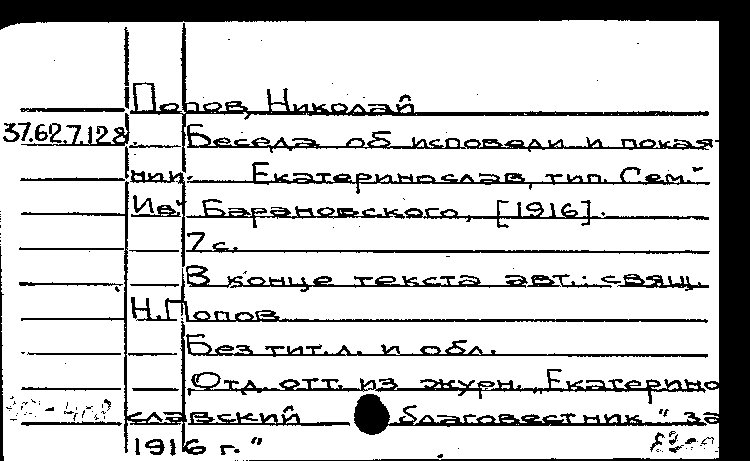 Попов, Николай
37.62.7.128. Беседа об исповеди и покая-
нии. Екатеринослав, тип. Сем."
Ив." Барановского, [1916].
7 с.
В конце текста авт.: свящ.
Н.Попов
Без тит.л. и обл.
"Отд. отт. из журн. „Екатерино
славский благовестник." за
1916 г."